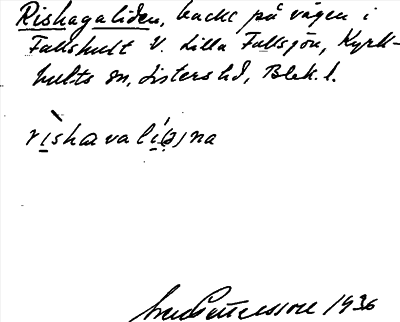 Rishagaliden, backe på vägen i
Fallshult V. Lilla Fallsjön, Kyrk-
hults sn, Listers hd, Blek. l.
rìshavali(ə)na
1936